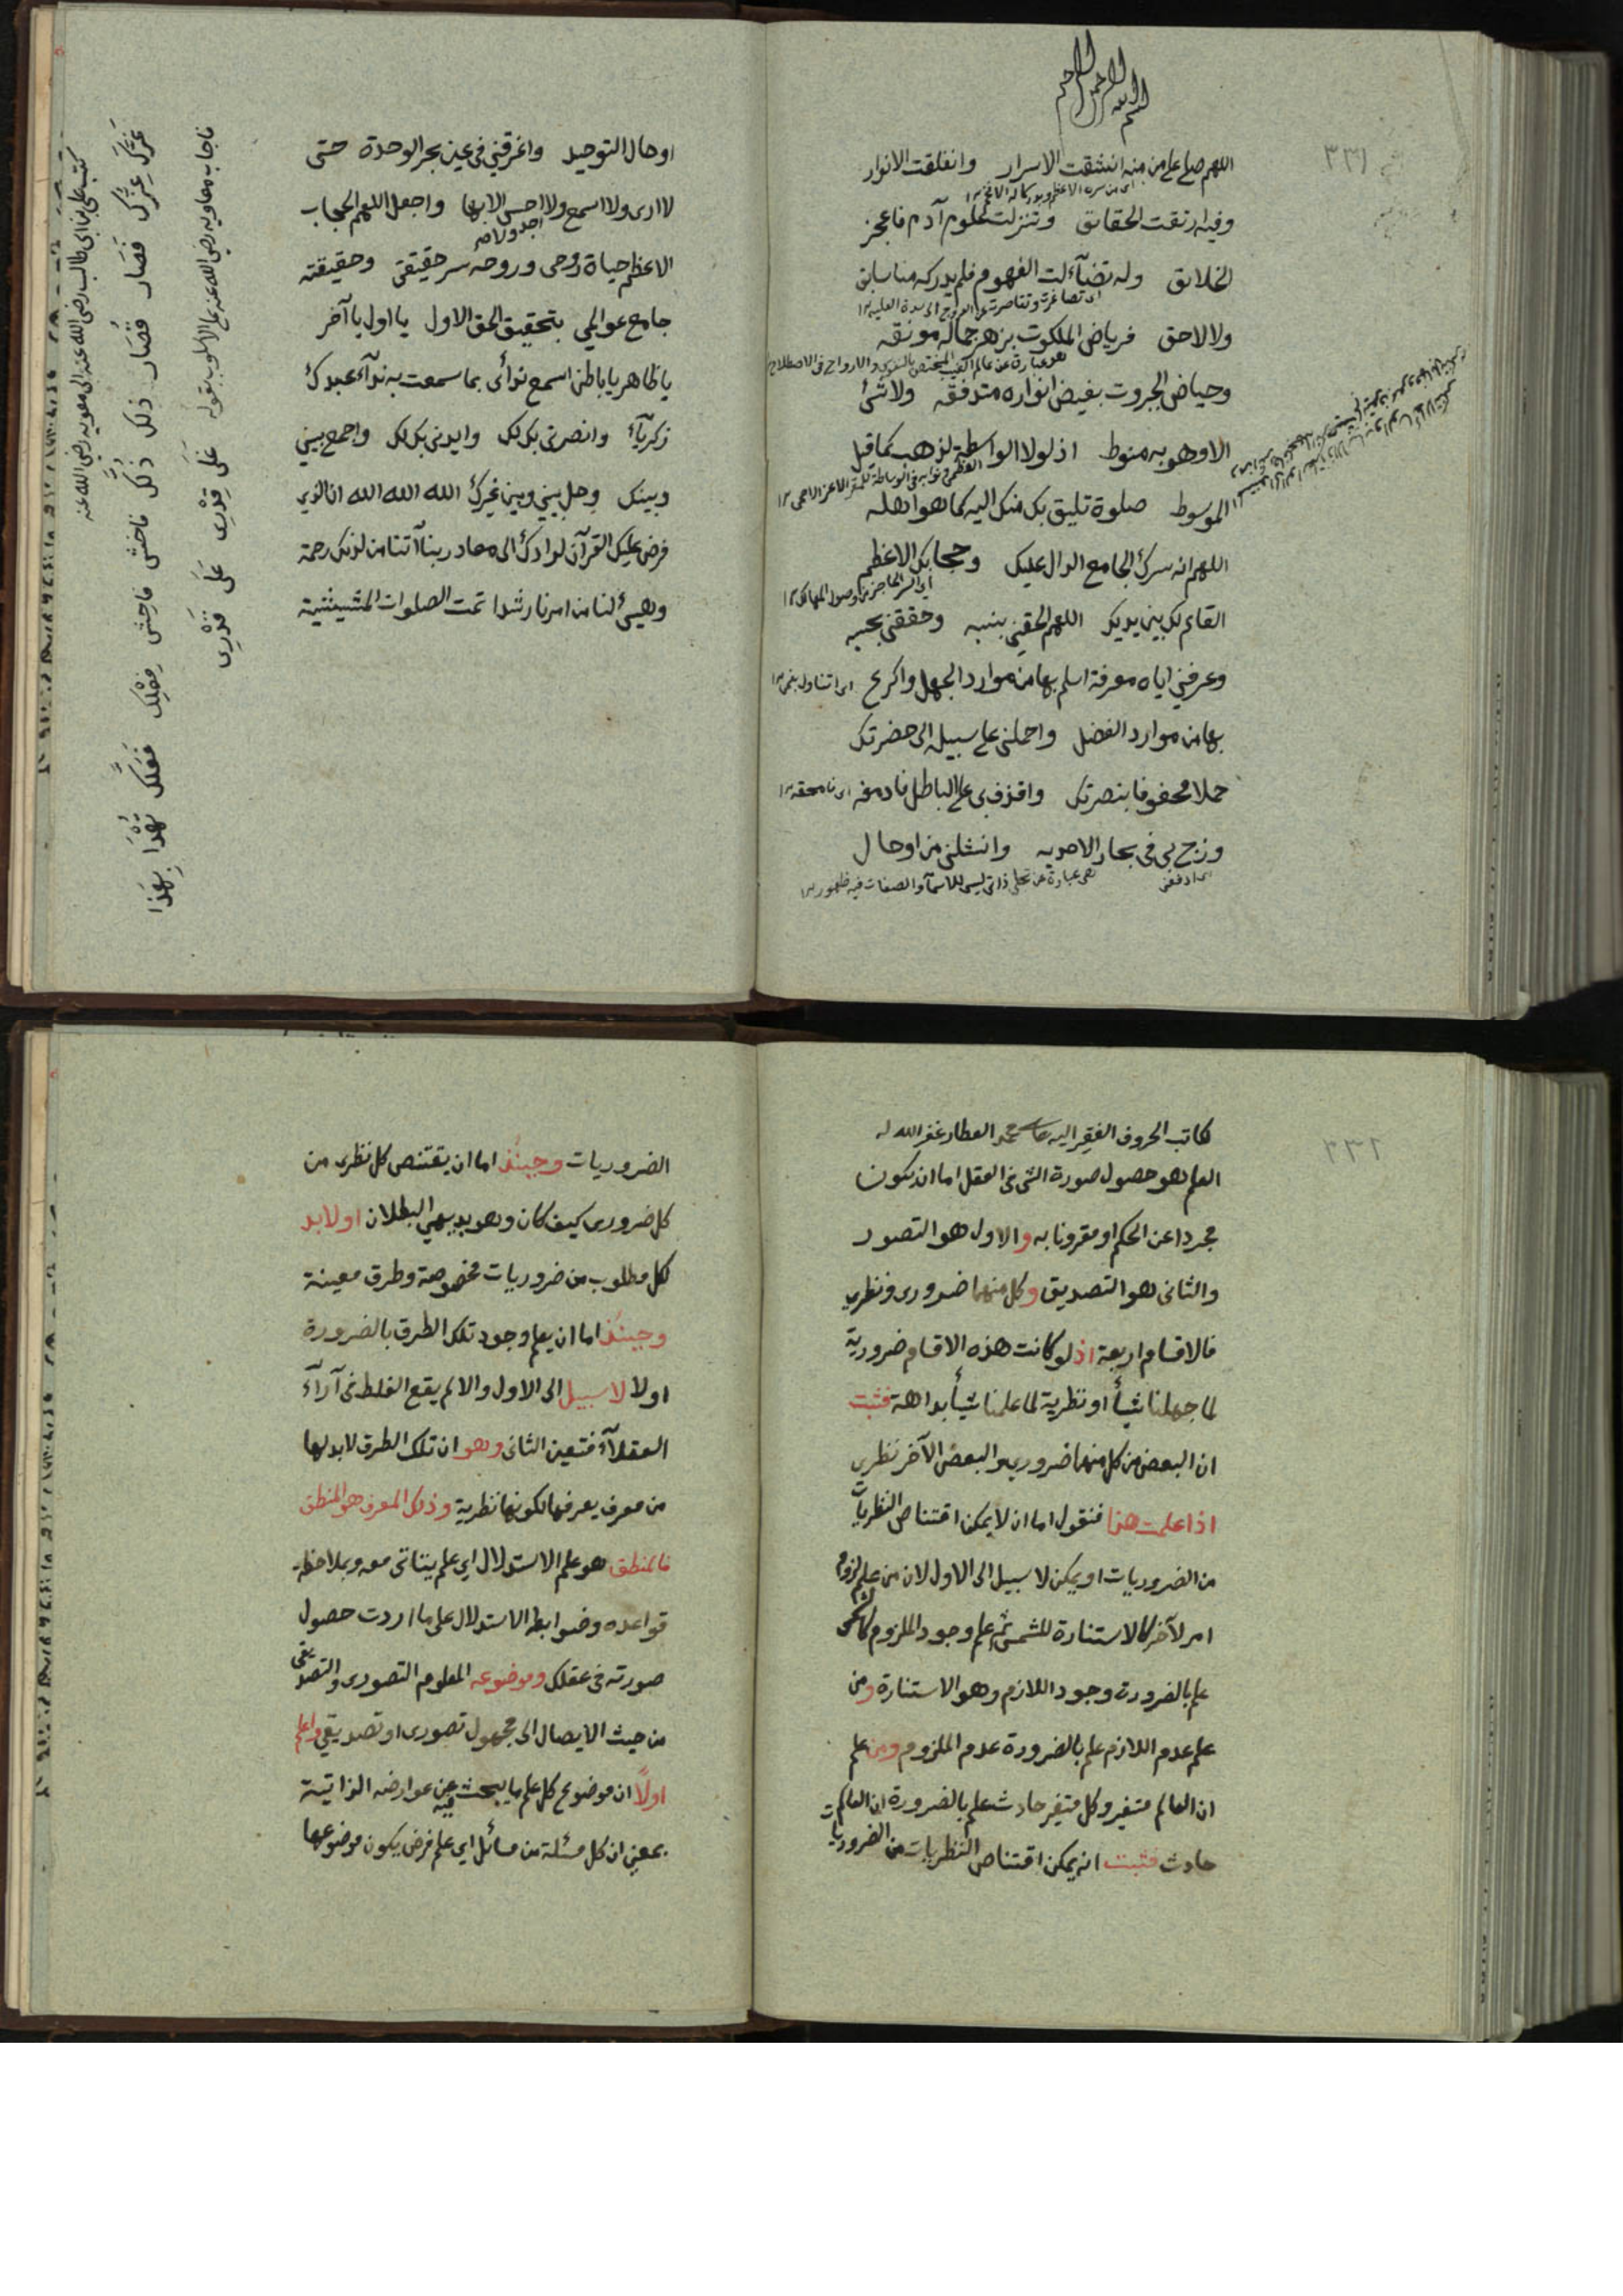 بسم الله الرحمن الرحيم
٣٣١
اللهم صل على من منه انشقت الاسرار وانفلقت الانوار
وفيه ارتقت الحقائق وتنزلت علوم آدم فاعجز
الخلائق وله تضآءلت الفهوم فلم يدركه منا سابق
ولا لاحق فرياض الملكوت بزهر جماله مونقه
هو عبارة عن عالم الغيب المختص بالنفوس والارواح في الاصطلاح
وحياض الجبروت بفيض انواره متدفقه ولا شئ
الا وهو به منوط اذ لولا الواسطة لذهب كما قيل
الموسوط صلوة تليق بك منك اليه كما هو اهله
اللهم انه سرك الجامع الدال عليك وحجابك الاعظم
القائم لك بين يديك اللهم الحقني بنسبه وحققني بحسبه
وعرفني اياه معرفة اسلم بها من موارد الجهل واكرع
بها من موارد الفضل واحملني على سبيله الى حضرتك
حملا محفوفا بنصرتك واقذف بي على الباطل فادمغه
وزج بي في بحار الاحديه وانشلني من اوحال
اى ادفعنى هى عبارة عن تجلى ذاتى ليس للاسمآء والصفات فيه ظهور
اوحال التوحيد واغرقني في عين بحر الوحدة حتى
لا ارى ولا اسمع ولا احس الا بها واجعل اللهم الحجاب
اجد ولا صح
الاعظم حياة روحى وروحه سر حقيقتى وحقيقته
جامع عوالمي بتحقيق الحق الاول يا اول يا آخر
يا ظاهر يا باطن اسمع ندائى بما سمعت به ندآء عبدك
زكريآء وانصرنى بك لك وايدنى بك لك واجمع بيني
وبينك وحل بيني وبين غيرك الله الله الله ان الذي
فرض عليك القرآن لرادك الى معاد ربنا آتنا من لدنك رحمة
وهيئ لنا من امرنا رشدا تمت الصلوات المشيشية
كتب علي ابن ابى طالب رضى الله عنه الى معويه رضى الله عنه
غَرَّكَ عِزُّكَ فَصَارَ قُصَارَ ذٰلِكَ ذُلُّكَ فاخش فاحش فِعْلِكَ فَعَلَّكَ تُهْدَا بِهٰذَا
فاجاب معاويه رضي الله عنه على الاسلوب بقوله عَلَى قِدْرِى عَلَى قَدْرِى
٣٣٢
كاتب الحروف الفقير اليه محمد العطار غفر الله له
العلم هو حصول صورة الشئ فى العقل اما ان يكون
مجردا عن الحكم او مقرونا به والاول هو التصور
والثانى هو التصديق وكل منهما ضرورى ونظري
فالاقسام اربعة اذ لو كانت هذه الاقسام ضرورية
لما جهلنا شيأ او نظرية لما علمنا شيأ بداهة فثبت
ان البعض من كل منهما ضروري والبعض الآخر نظري
اذا علمت هذا فنقول اما ان لا يمكن اقتناص النظريات
من الضروريات او يمكن لا سبيل الى الاول لان من علم لزوم
امر لآخر كالاستنارة للشمس ثم علم وجود الملزوم
علم بالضرورة وجود اللازم وهو الاستنارة ومن
علم عدم اللازم علم بالضرورة عدم الملزوم ومن علم
ان العالم متغير وكل متغير حادث علم بالضرورة ان العالم
حادث فثبت انه يمكن اقتناص النظريات من الضروريات
الضروريات وحينئذ اما ان يقتنص كل نظرى من
كل ضرورى كيف كان وهو بديهي البطلان او لابد
لكل مطلوب من ضروريات مخصوصة وطرق معينة
وحينئذ اما ان يعلم وجود تلك الطرق بالضرورة
اولا لا سبيل الى الاول والا لم يقع الغلط فى آرآء
العقلآء فتعين الثانى وهو ان تلك الطرق لابد لها
من معرف يعرفها لكونها نظرية وذلك المعرف هو المنطق
فالمنطق هو علم الاستدلال اي علم يتاتى معه وبملاحظة
قواعده وضوابطه الاستدلال على ما اردت حصول
صورته فى عقلك وموضوعه المعلوم التصورى والتصديقى
من حيث الايصال الى مجهول تصورى او تصديقي واعلم
اولاً ان موضوع كل علم ما يبحث فيه عن عوارضه الذاتية
بمعنى ان كل مسئلة من مسائل اي علم فرض يكون موضوعها